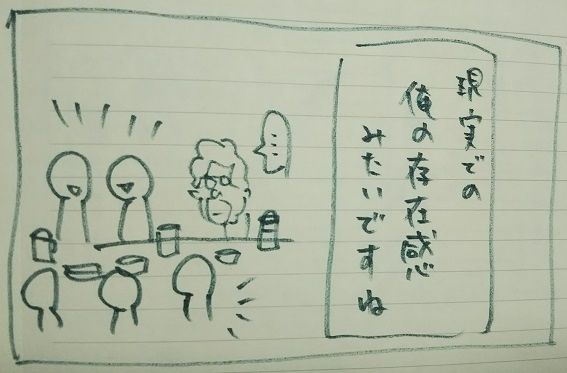 現実での
俺の存在感
みたいですね
……